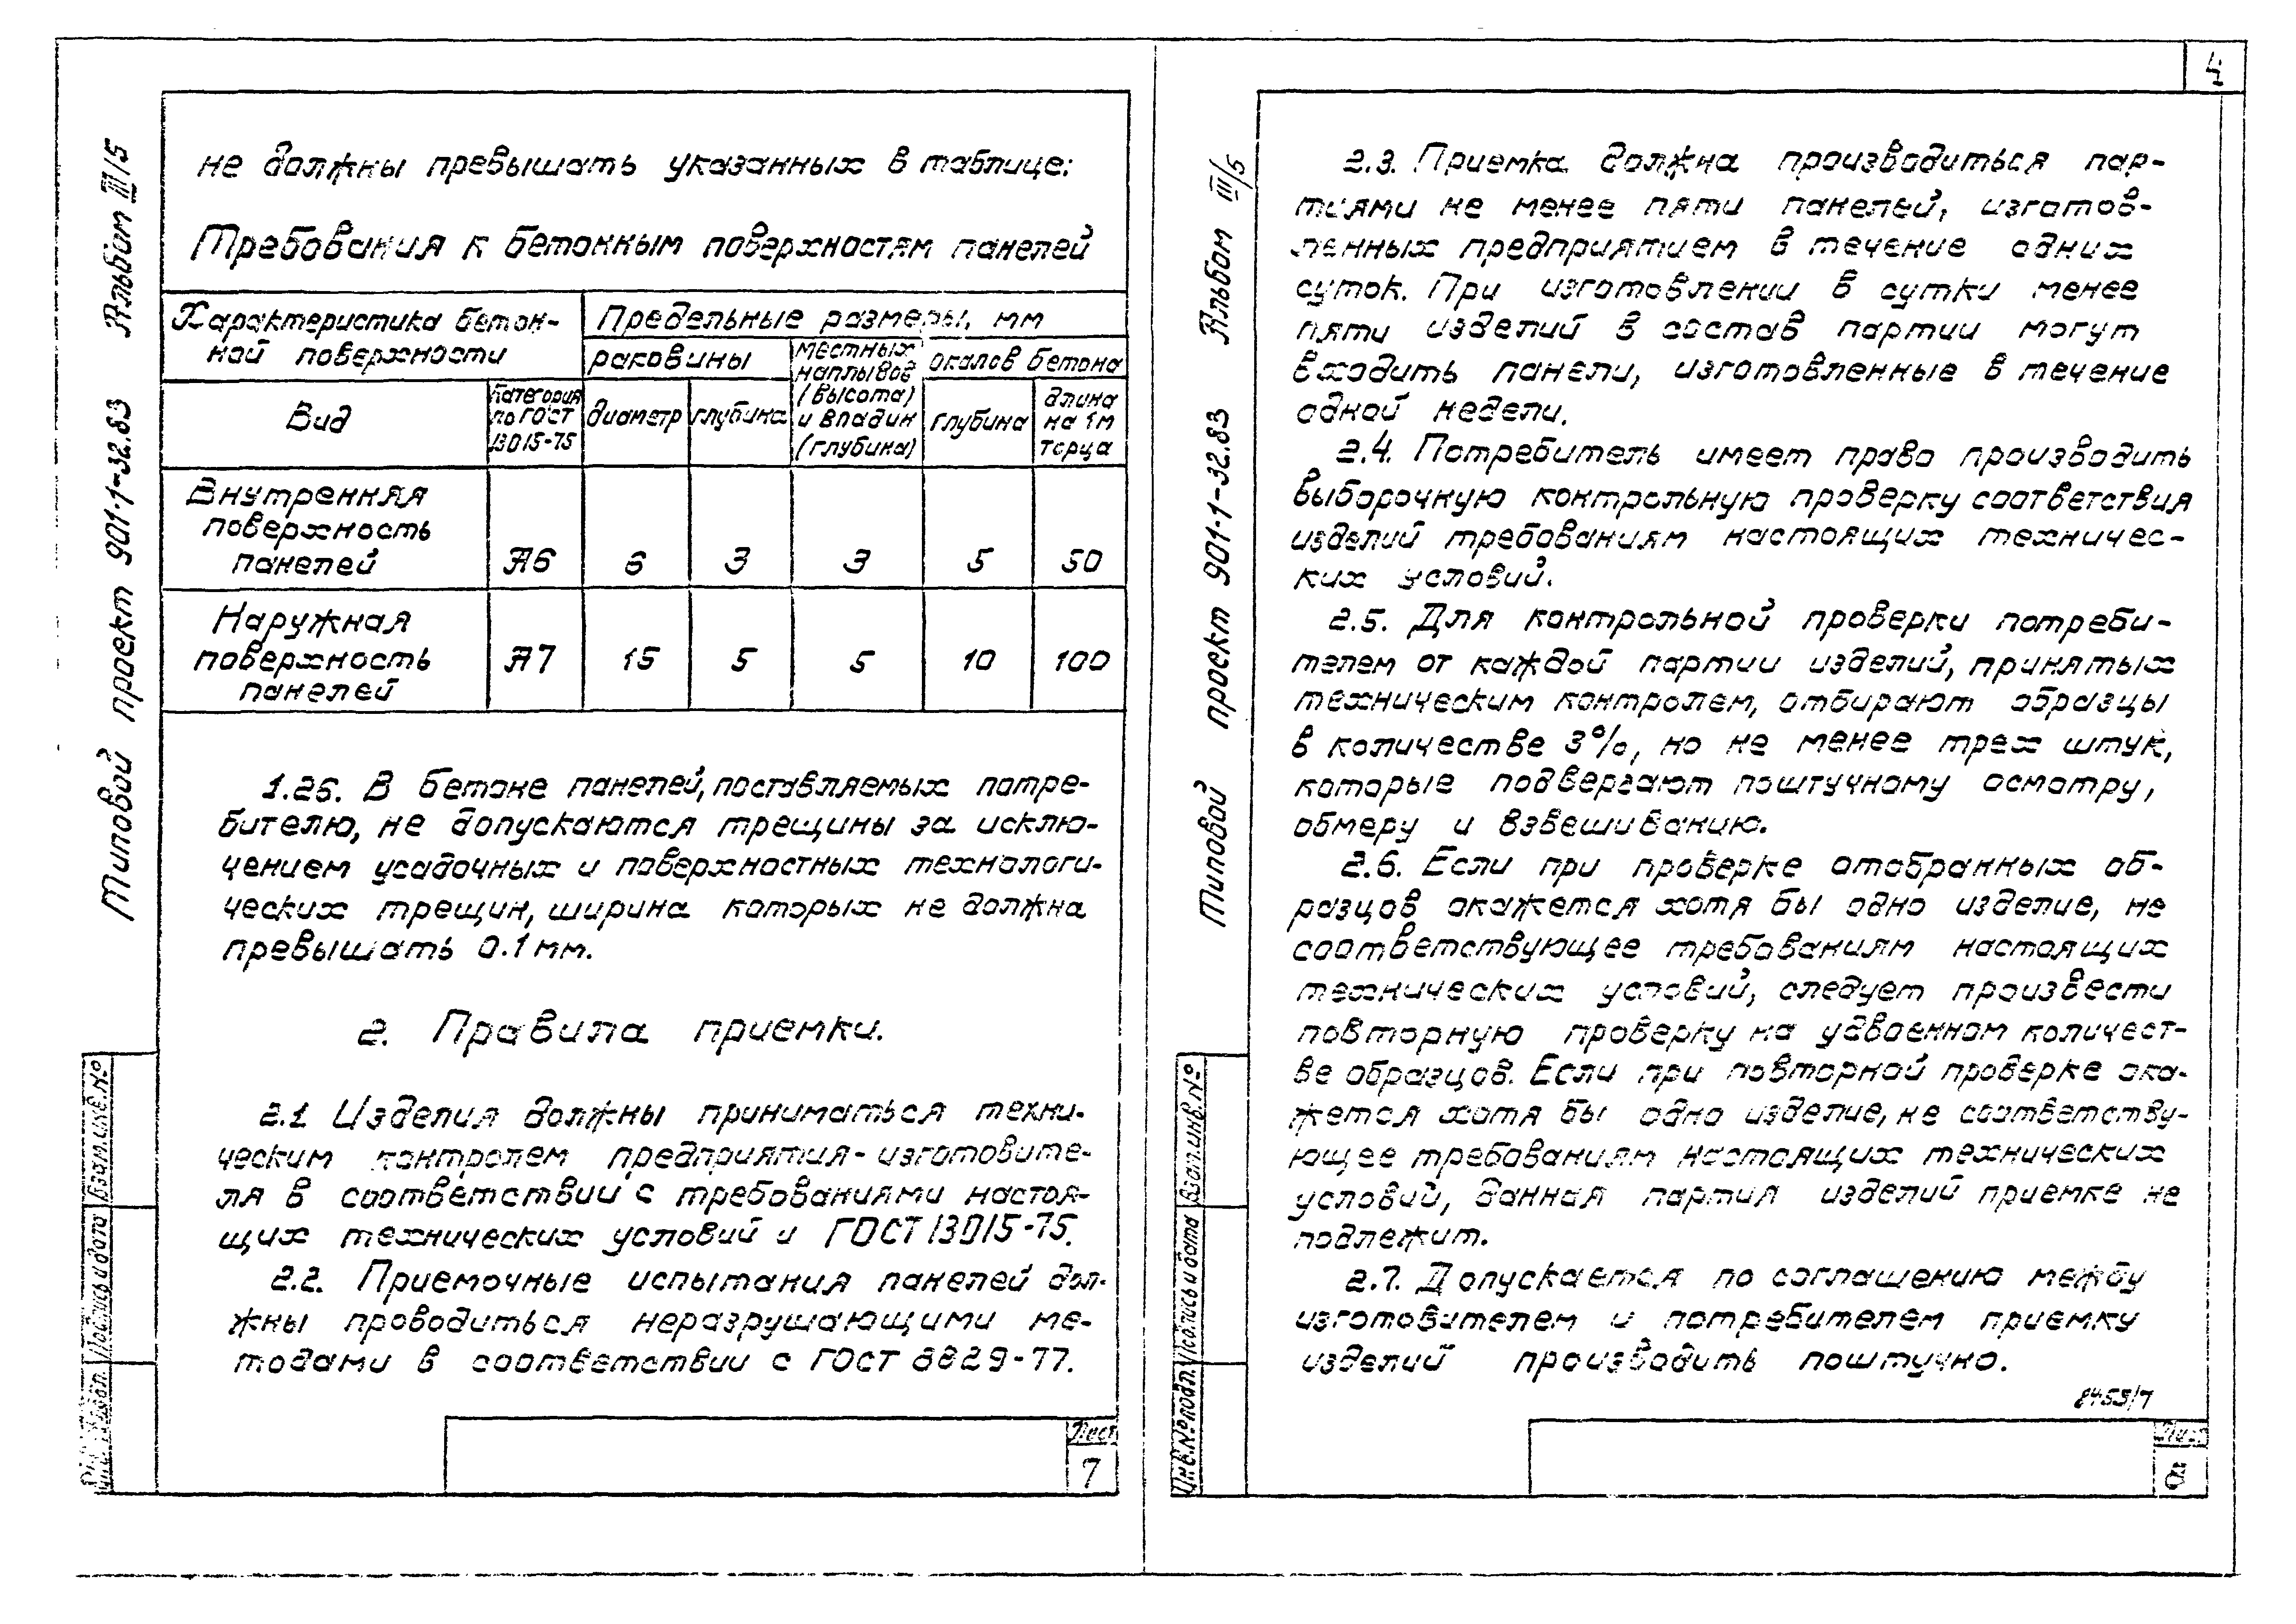 4
Типовой проект 901-1-32.83 Альбом III/5
не должны превышать указанных в таблице:
Требования к бетонным поверхностям панелей
Характеристика бетон-
ной поверхности
Предельные размеры, мм
раковины
местных
наплывов
(высота)
и впадин
(глубина)
околов бетона
Вид
Категория
по ГОСТ
13015-75
диаметр
глубина
глубина
длина
на 1м
торца
Внутренняя
поверхность
панелей
А6 6 3 3 5 50
Наружная
поверхность
панелей
А7 15 5 5 10 100
1.26. В бетоне панелей, поставляемых потре-
бителю, не допускаются трещины за исклю-
чением усадочных и поверхностных технологи-
ческих трещин, ширина которых не должна
превышать 0.1 мм.
2. Правила приемки.
2.1 Изделия должны приниматься техни-
ческим контролем предприятия-изготовите-
ля в соответствии с требованиями настоя-
щих технических условий и ГОСТ 13015-75.
2.2. Приемочные испытания панелей дол-
жны проводиться неразрушающими ме-
тодами в соответствии с ГОСТ 8829-77.
Взам.инв.№
Подпись и дата
подл.
Лист
7
Типовой проект 901-1-32.83 Альбом III/5
2.3. Приемка должна производиться пар-
тиями не менее пяти панелей, изготов-
ленных предприятием в течение одних
суток. При изготовлении в сутки менее
пяти изделий в состав партии могут
входить панели, изготовленные в течение
одной недели.
2.4. Потребитель имеет право производить
выборочную контрольную проверку соответствия
изделий требованиям настоящих техничес-
ких условий.
2.5. Для контрольной проверки потреби-
телем от каждой партии изделий, принятых
техническим контролем, отбирают образцы
в количестве 3%, но не менее трех штук,
которые подвергают поштучному осмотру,
обмеру и взвешиванию.
2.6. Если при проверке отобранных об-
разцов окажется хотя бы одно изделие, не
соответствующее требованиям настоящих
технических условий, следует произвести
повторную проверку на удвоенном количест-
ве образцов. Если при повторной проверке ока-
жется хотя бы одно изделие, не соответству-
ющее требованиям настоящих технических
условий, данная партия изделий приемке не
подлежит.
2.7. Допускается по соглашению между
изготовителем и потребителем приемку
изделий производить поштучно.
Взам.инв.№
Подпись и дата
Инв.№ подл.
Лист
8